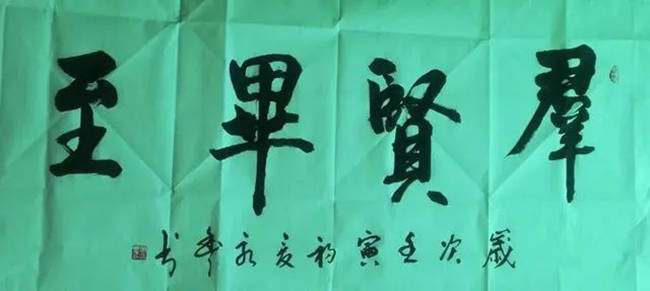 羣賢畢至
歲次壬寅初夏永书